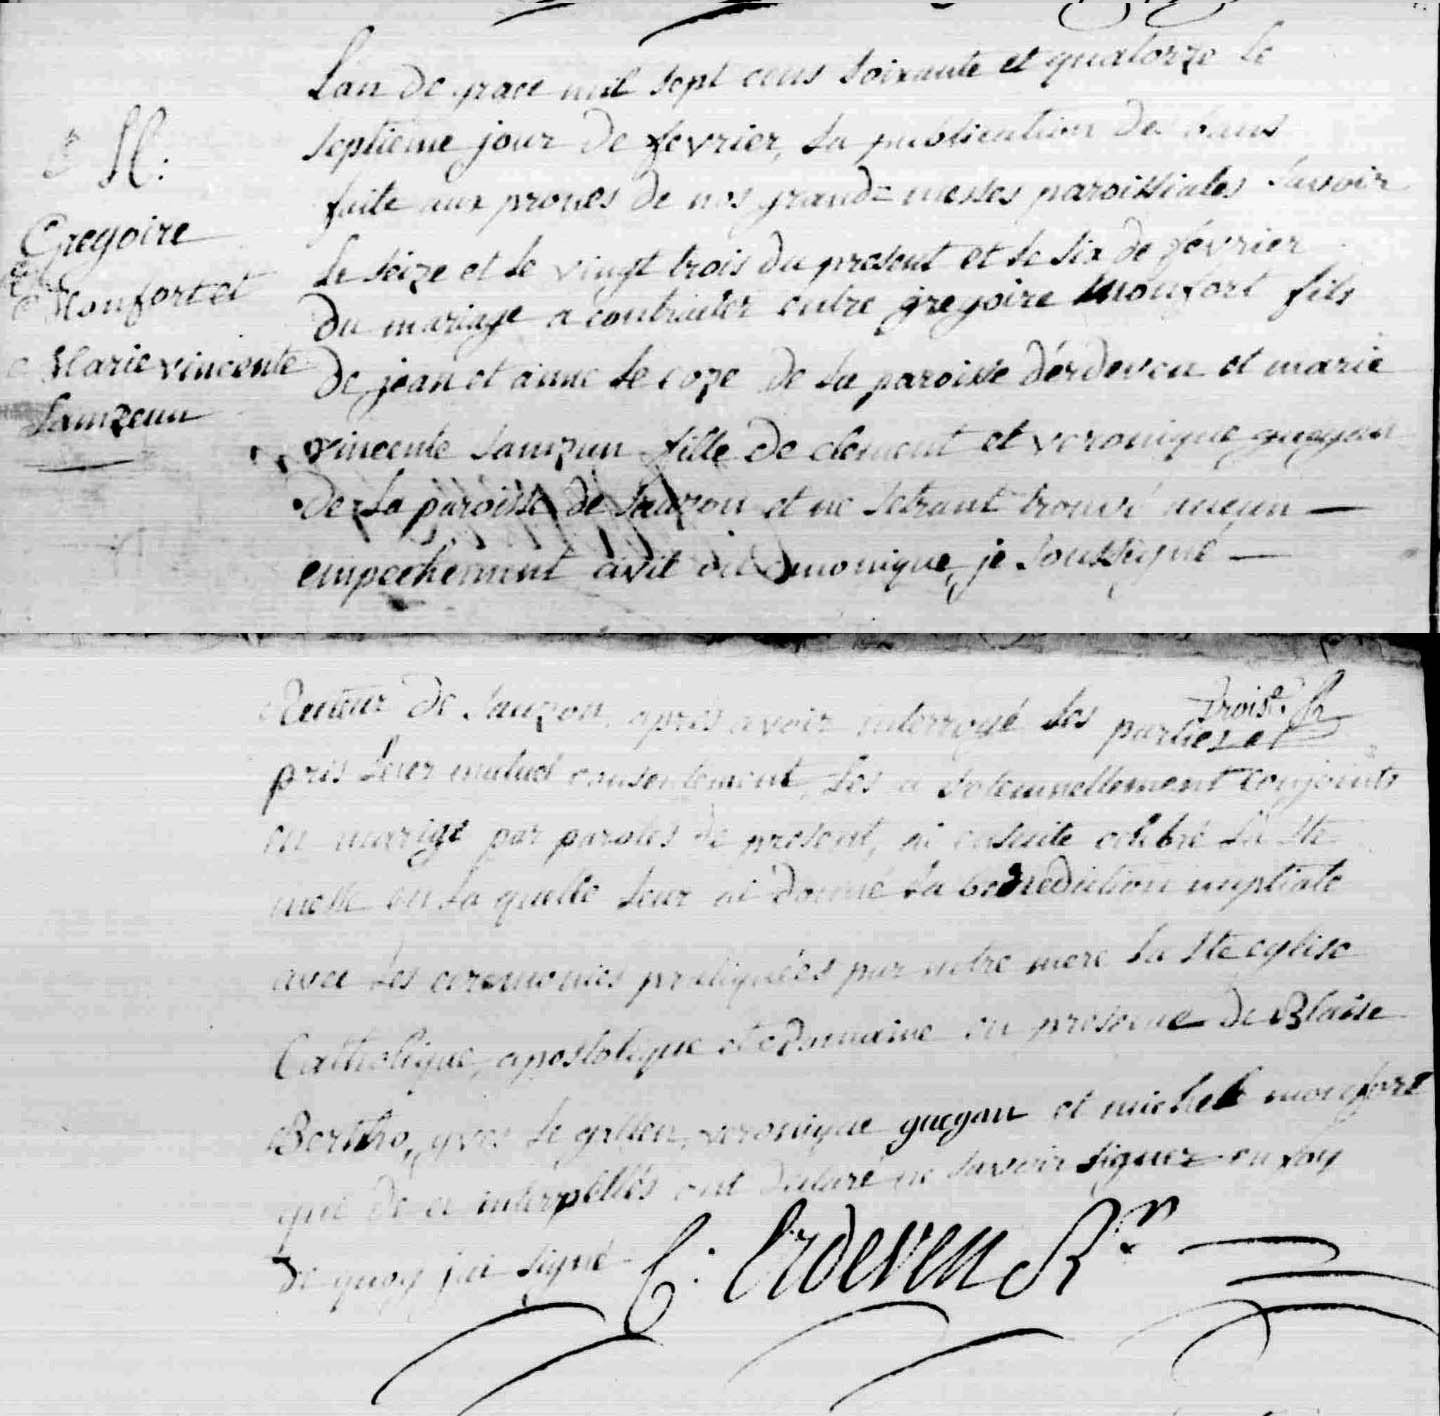 M:
Gregoire
Monfort et
Marie vincente
Samzun
L'an de grace mil sept cens soixante et quatorze le
septieme jour de fevrier, la publication des bans
faite aux prones de nos grandz messes paroissiales savoir
le seize et le vingt trois du present et le six de février
du mariage a contracter entre gregoire Monfort fils
de jean et anne le coze de la paroisse d'érdeven et marie
vincente Samzun fille de clement et veronique guegan
de la paroisse de Sauzon et ne setrant trouvé aucun
empechement civil ou canonique, je soussigné
Recteur de Sauzon, apres avoir interrogé les parties et
pris leur mutuel consentement, les a solemnellement conjoints
en marige par paroles de present, ai ensuite celebré la Ste
messe en la quelle leur ai donné la benediction nuptiale
avec les ceremonies pratiquées par notre mere la Ste eglise
Catholique, apostolique et romaine en presence de Blaise
Bertho, yves le gallen, veronique guegan et michel monfort
qui de ce interpellés ont déclaré ne savoir signer en foy
de quoy j'ai signé C: Erdeven Rr